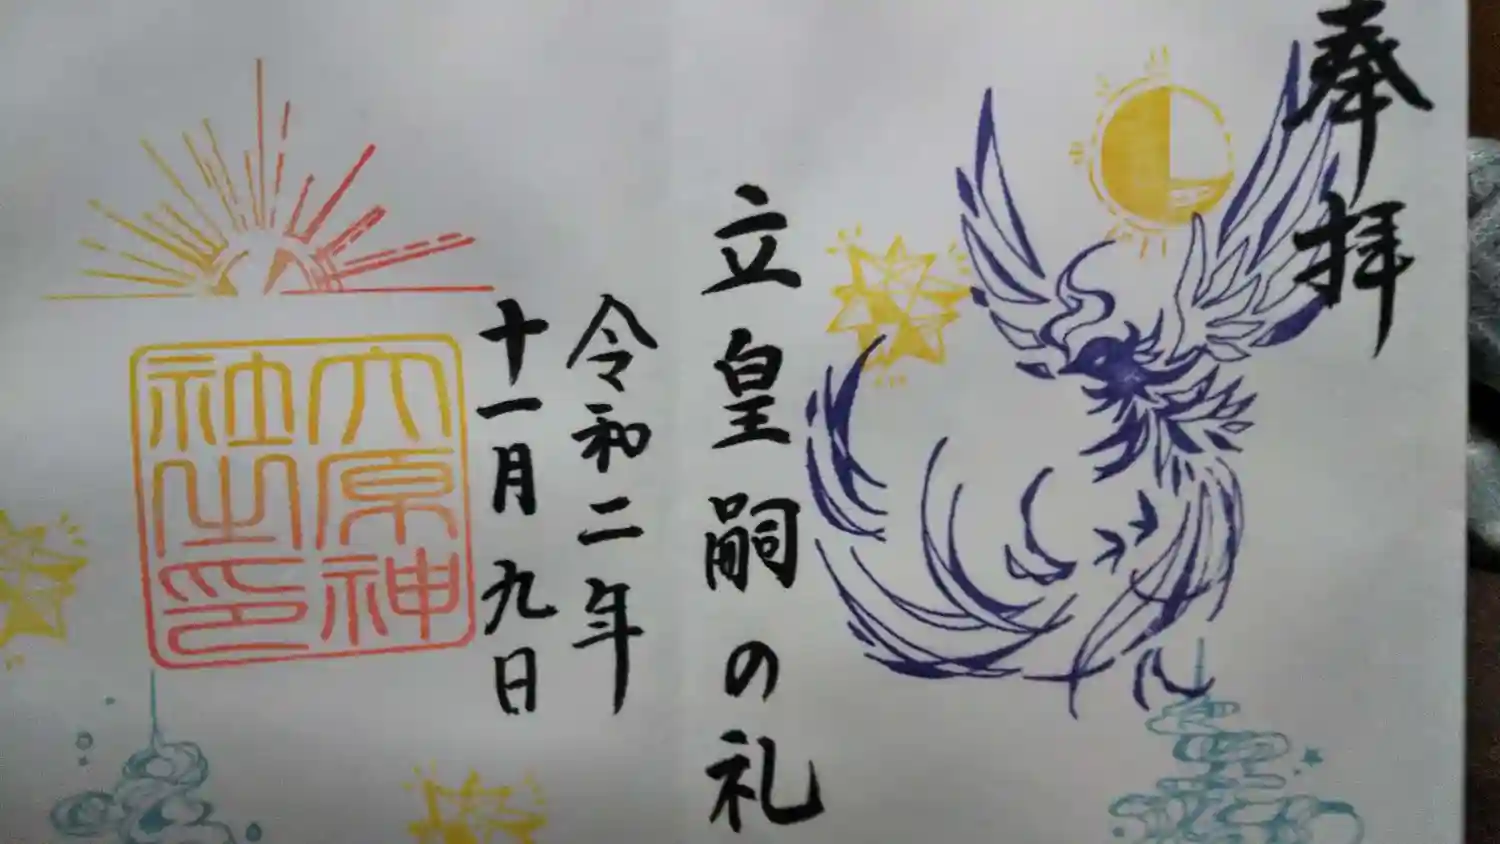 奉拝
立皇嗣の礼
令和二年
十一月九日
大原神
社之印